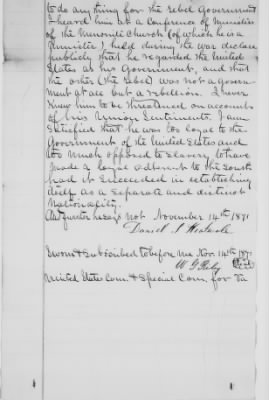 to do any thing for the rebel Government
I heard him at a Conference of Ministers
of the Menonite Church (of which he is a
Minister), held during the war declare
publicly that he regarded the United
States as his Government, and that
the other (the Rebel) was not a govern-
ment at all but a rebellion. I never
knew him to be threatened on account
of his Union Sentiments. I am
satisfied that he was too loyal to the
Government of the United States and
too much opposed to slavery to have
made a loyal adherent to the South
had it succeeded in establishing
itself as a separate and distinct
nationality.
And further he says not November 14th 1871
Daniel
Sworn & Subscribed to before me Nov. 14th 1871
W G
United States Com. & Special Com. for Va